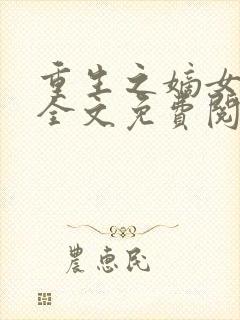 重生之嫡女
全文免費閱
農惠民